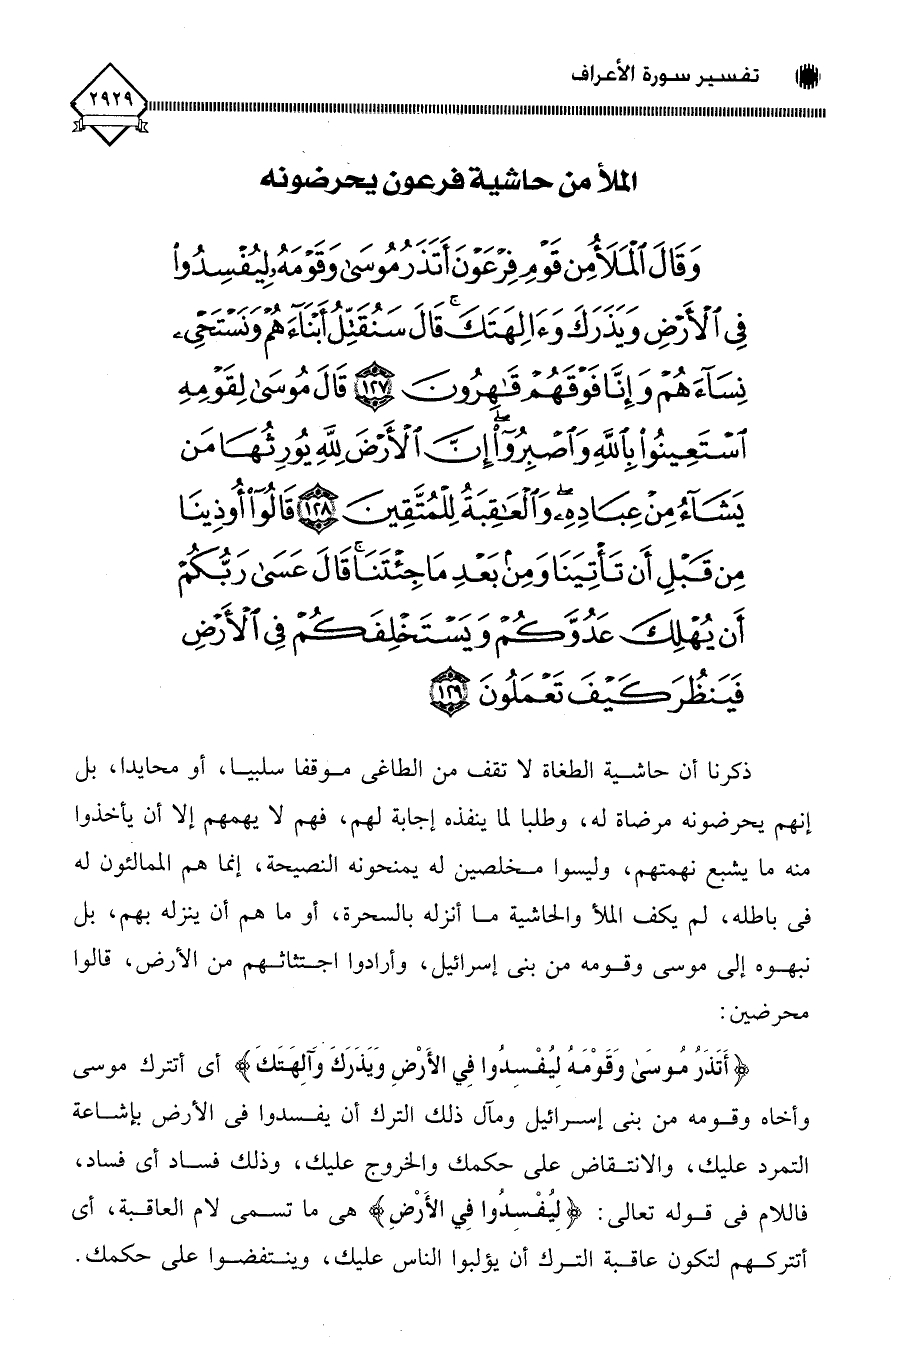 تفسير سورة الأعراف
٢٩٢٩
الملأ من حاشية فرعون يحرضونه
وَقَالَ ٱلْمَلَأُ مِن قَوْمِ فِرْعَوْنَ أَتَذَرُ مُوسَىٰ وَقَوْمَهُۥ لِيُفْسِدُوا۟
فِى ٱلْأَرْضِ وَيَذَرَكَ وَءَالِهَتَكَ ۚ قَالَ سَنُقَتِّلُ أَبْنَآءَهُمْ وَنَسْتَحْىِۦ
نِسَآءَهُمْ وَإِنَّا فَوْقَهُمْ قَٰهِرُونَ ١٢٧ قَالَ مُوسَىٰ لِقَوْمِهِ
ٱسْتَعِينُوا۟ بِٱللَّهِ وَٱصْبِرُوٓا۟ ۖ إِنَّ ٱلْأَرْضَ لِلَّهِ يُورِثُهَا مَن
يَشَآءُ مِنْ عِبَادِهِۦ ۖ وَٱلْعَٰقِبَةُ لِلْمُتَّقِينَ ١٢٨ قَالُوٓا۟ أُوذِينَا
مِن قَبْلِ أَن تَأْتِيَنَا وَمِنۢ بَعْدِ مَا جِئْتَنَا ۚ قَالَ عَسَىٰ رَبُّكُمْ
أَن يُهْلِكَ عَدُوَّكُمْ وَيَسْتَخْلِفَكُمْ فِى ٱلْأَرْضِ
فَيَنظُرَ كَيْفَ تَعْمَلُونَ ١٢٩
ذكرنا أن حاشية الطغاة لا تقف من الطاغى موقفا سلبيا، أو محايدا، بل
إنهم يحرضونه مرضاة له، وطلبا لما ينفذه إجابة لهم، فهم لا يهمهم إلا أن يأخذوا
منه ما يشبع نهمتهم، وليسوا مخلصين له يمنحونه النصيحة، إنما هم الممالئون له
فى باطله، لم يكف الملأ والحاشية ما أنزله بالسحرة، أو ما هم أن ينزله بهم، بل
نبهوه إلى موسى وقومه من بنى إسرائيل، وأرادوا اجتثاثهم من الأرض، قالوا
محرضين:
﴿أَتَذَرُ مُوسَىٰ وَقَوْمَهُ لِيُفْسِدُوا فِي الأَرْضِ وَيَذَرَكَ وَآلِهَتَكَ﴾ أى أتترك موسى
وأخاه وقومه من بنى إسرائيل ومآل ذلك الترك أن يفسدوا فى الأرض بإشاعة
التمرد عليك، والانتقاض على حكمك والخروج عليك، وذلك فساد أى فساد،
فاللام فى قوله تعالى: ﴿لِيُفْسِدُوا فِي الأَرْضِ﴾ هى ما تسمى لام العاقبة، أى
أتتركهم لتكون عاقبة الترك أن يؤلبوا الناس عليك، وينتفضوا على حكمك.